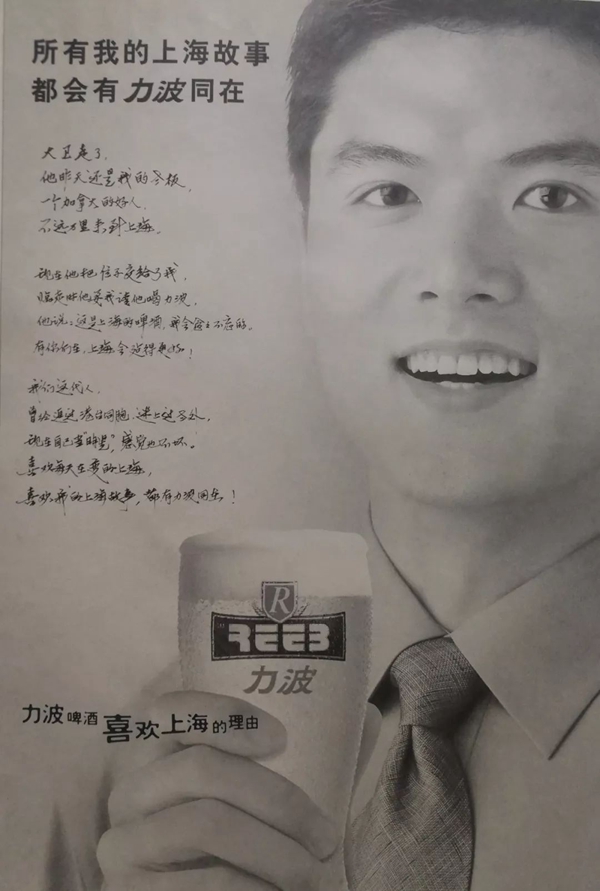 所有我的上海故事
都会有力波同在
大卫走了，
他昨天还是我的老板，
一个加拿大的好人，
不远万里来到上海。
现在他把位子交给了我，
临走时他要我请他喝力波，
他说：这是上海的啤酒，我会念念不忘的。
有你们在，上海会变得更好！
我们这代人，
曾经追过港台同胞，迷上过老外，
现在自己当"明星"，感觉也不坏。
喜欢每天在变的上海，
喜欢我的上海故事，都有力波同在！
R
REEB
力波
力波啤酒 喜欢上海的理由